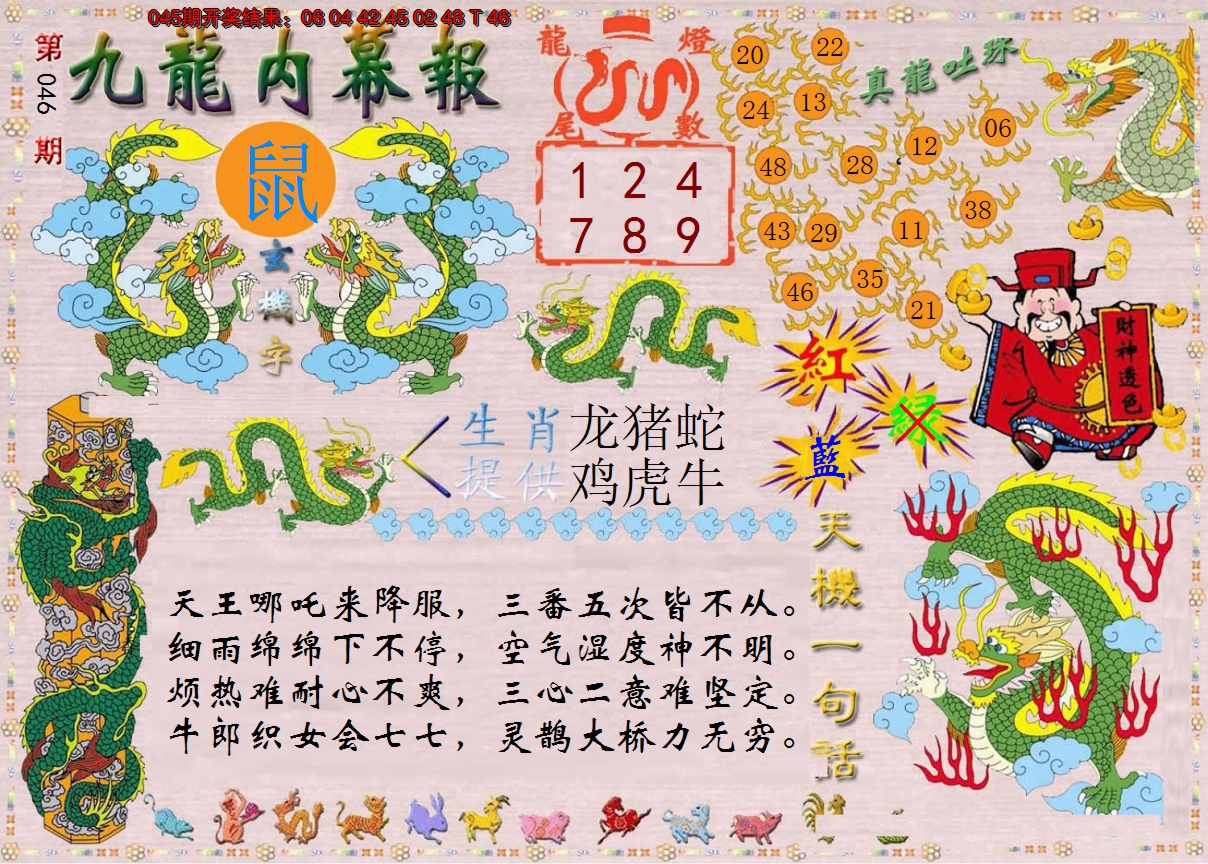 045期开奖结果：06 04 42 45 02 48 T 46
第046期
九龍内幕報
鼠
玄機字
龍燈尾數
1 2 4
7 8 9
真龍吐珠
20 22
24 13
48 28 12 06
43 29 11 38
46 35 21
紅
绿
藍
財神透色
生肖提供
龙猪蛇
鸡虎牛
天機一句話
天王哪吒来降服，三番五次皆不从。
细雨绵绵下不停，空气湿度神不明。
烦热难耐心不爽，三心二意难坚定。
牛郎织女会七七，灵鹊大桥力无穷。